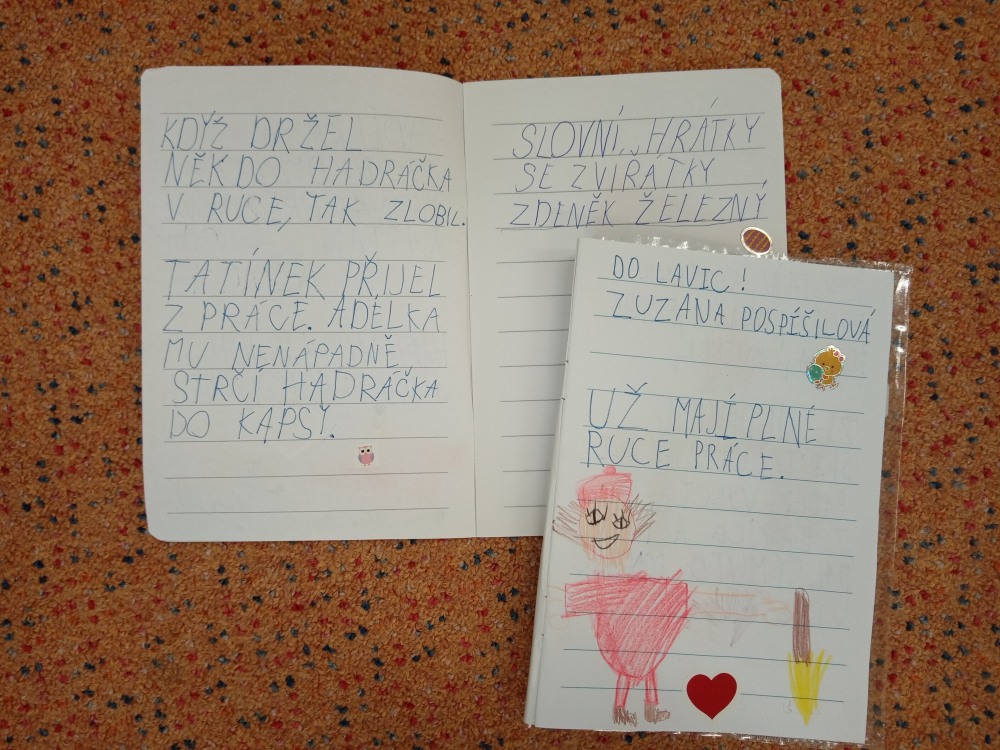 KDYŽ DRŽEL
NĚKDO HADRÁČKA
V RUCE, TAK ZLOBIL.
TATÍNEK PŘIJEL
Z PRÁCE. ADÉLKA
MU NENÁPADNĚ
STRČÍ HADRÁČKA
DO KAPSY.
SLOVNÍ HRÁTKY
SE ZVÍŘÁTKY
ZDENĚK ŽELEZNÝ
DO LAVIC!
ZUZANA POSPÍŠILOVÁ
UŽ MAJÍ PLNÉ
RUCE PRÁCE.